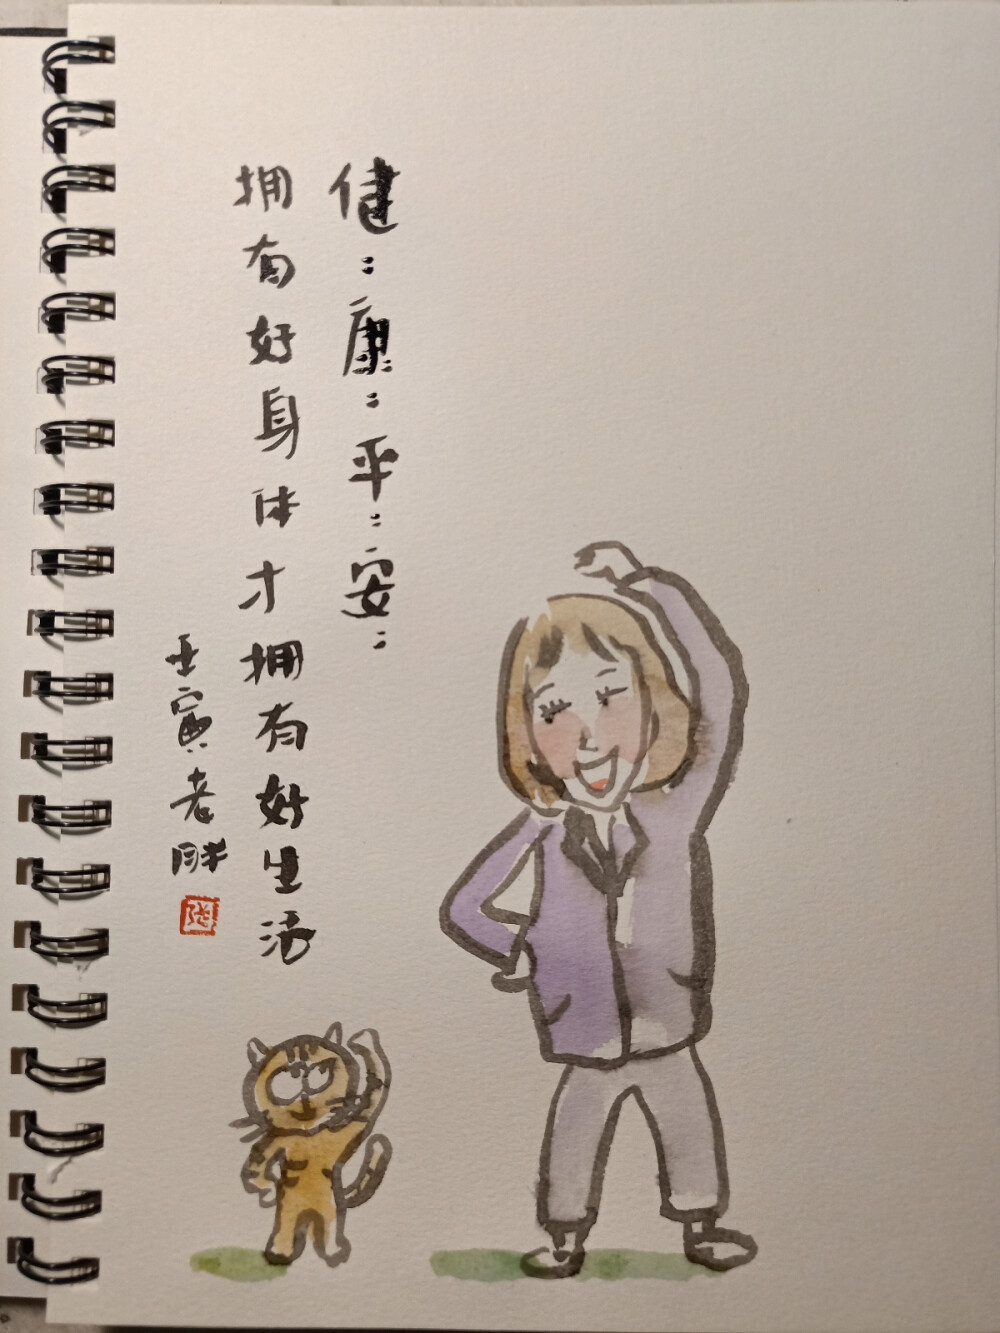 健：康：平：安：
拥有好身体才拥有好生活
壬寅老胖